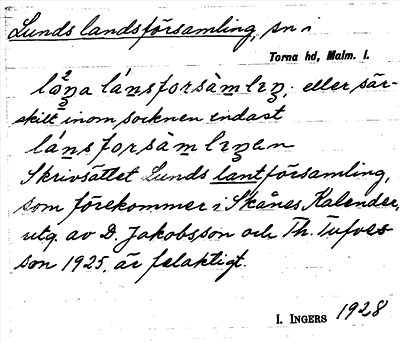 Lunds landsförsamling, sn i
Torna hd, Malm. l.
lánsforsàmlıŋ; eller sär-
skilt inom socknen endast
lánsforsàmlıŋen
Skrivsättet Lunds lantförsamling,
som förekommer i Skånes Kalender,
utg. av D. Jakobsson och Th. Tufves
son 1925, är felaktigt.
I. INGERS 1928